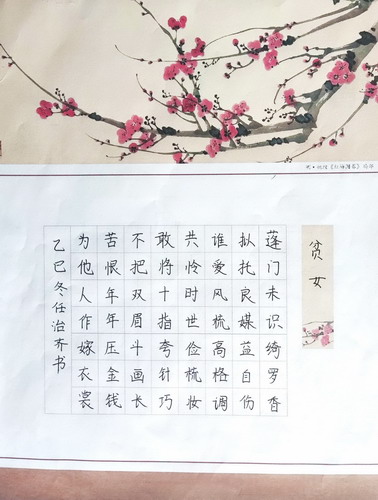 贫女
蓬门未识绮罗香
拟托良媒蓝自伤
谁爱风梳高格调
共怜时世俭梳妆
敢将十指夸针巧
不把双眉斗画长
苦恨年年压金钱
为他人作嫁衣裳
乙巳冬任治齐书